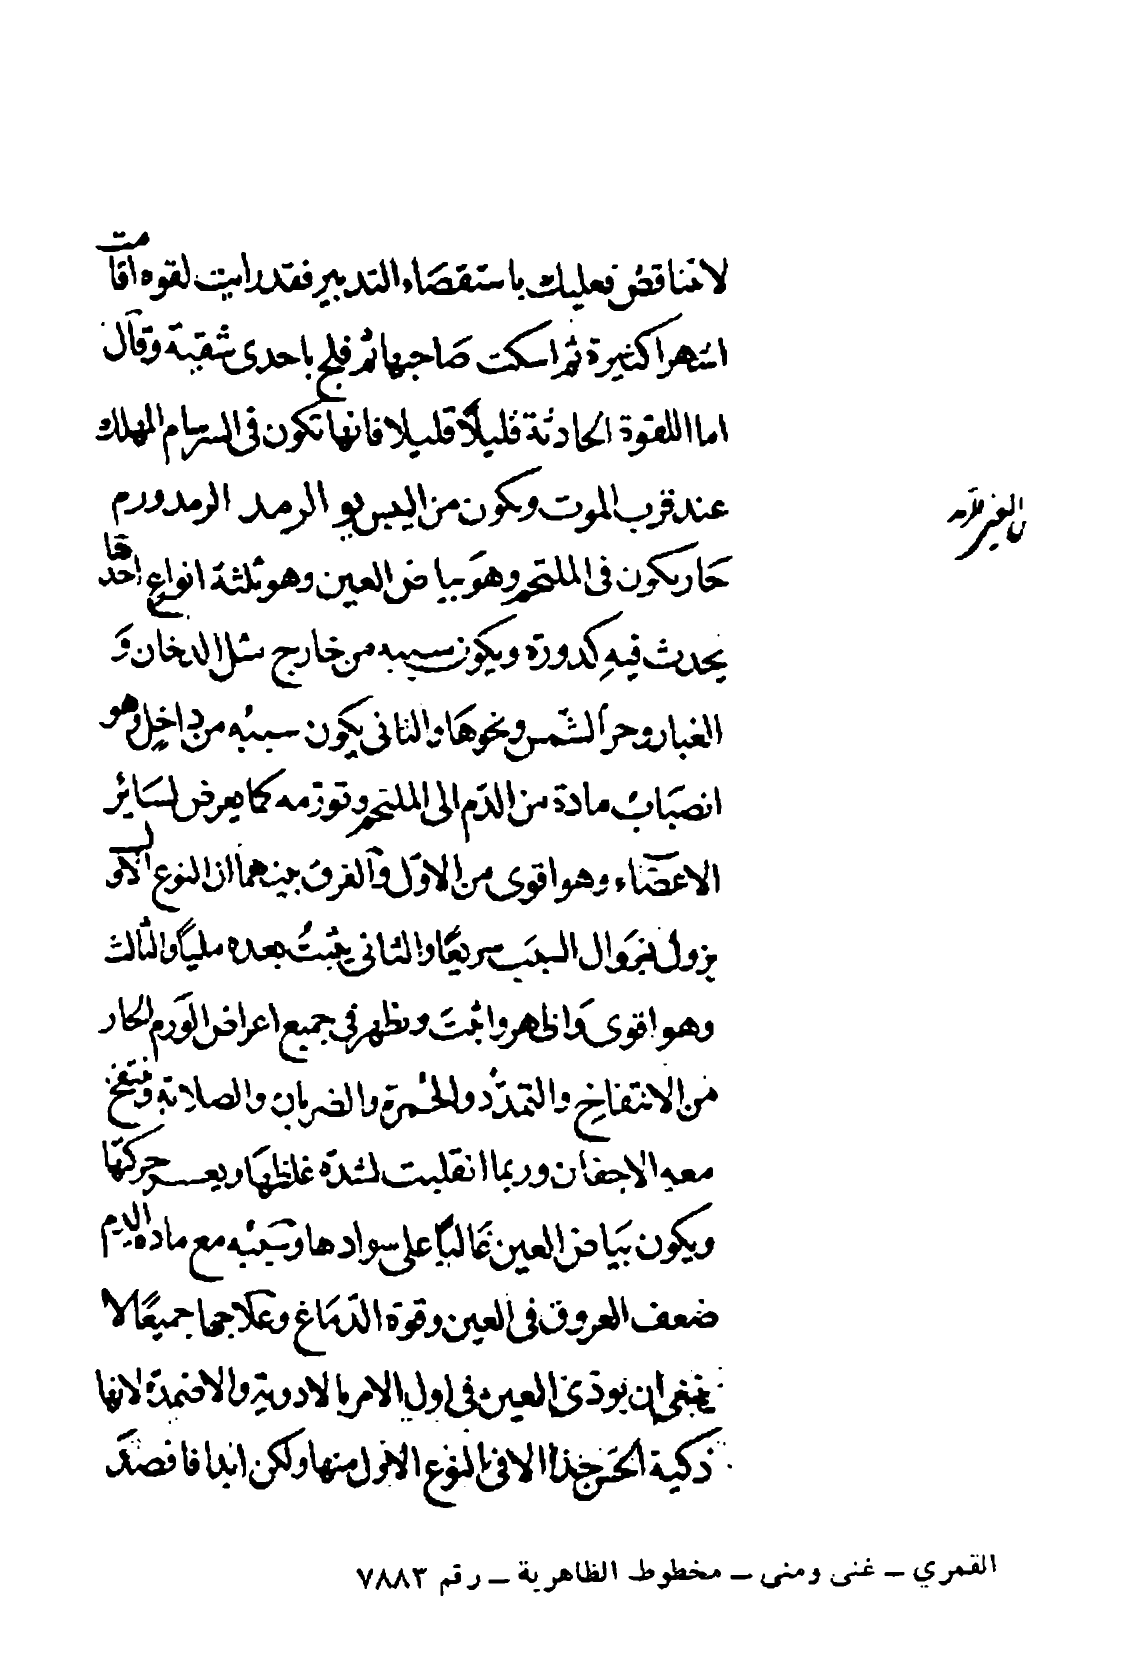 لا تتناقض فعليك باستقصاء التدبير فقد رايت لقوه اقامت
اشهرا كثيرة ثم اسكت صاحبها ثم فلج باحدى شقيه وقال
اما اللقوة الحادثة قليلاً قليلا فانها تكون في السرسام المهلك
عند قرب الموت ويكون من اليبس الرمد الرمد ورم
حار يكون في الملتحم وهو بياض العين وهو ثلثة انواع احدها
يحدث فيه كدورة ويكون سببه من خارج مثل الدخان و
الغبار وحر الشمس ونحوها والثاني يكون سببه من داخل وهو
انصباب مادة من الدم الى الملتحم وتورمه كما يعرض لسائر
الاعضاء وهو اقوى من الاول والفرق بينهما ان النوع الاول
يزول بزوال السبب سريعا والثاني يثبت بعده مليا والثالث
وهو اقوى واظهر واثبت ويظهر في جميع اعراض الورم الحار
من الانتفاخ والتمدد والحمرة والضربان والصلابة وتنتفخ
معه الاجفان وربما انقلبت لشدة غلظها ويعسر حركتها
ويكون بياض العين غالبا على سوادها وسببه مع مادة الدم
ضعف العروق في العين وقوة الدماغ وعلاجها جميعا لا
ينبغي ان يوذى العين في اول الامر بالادوية والاضمدة لانها
ذكية الحس جدا الا في النوع الاول منها ولكن ابدا فافصد
القمري ــ غنى ومنى ــ مخطوط الظاهرية ــ رقم ٧٨٨٣